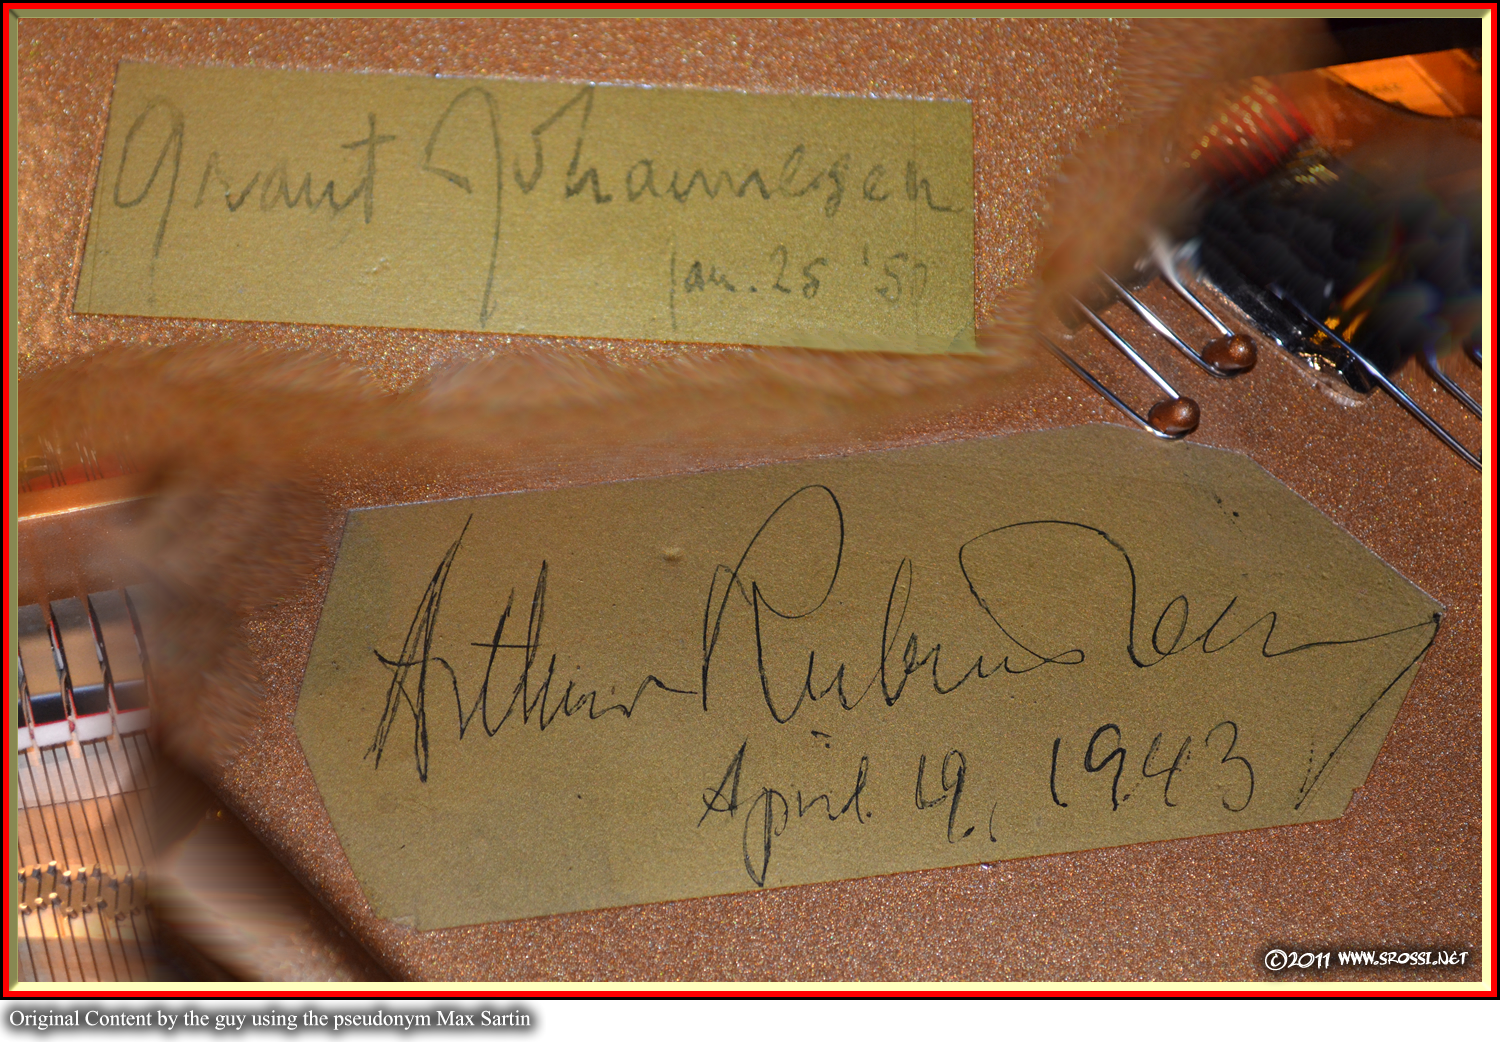 Grant Johannesen
Jan. 25 '50
Arthur Rubinstein
April 19, 1943
©2011 www.srossi.net
Original Content by the guy using the pseudonym Max Sartin